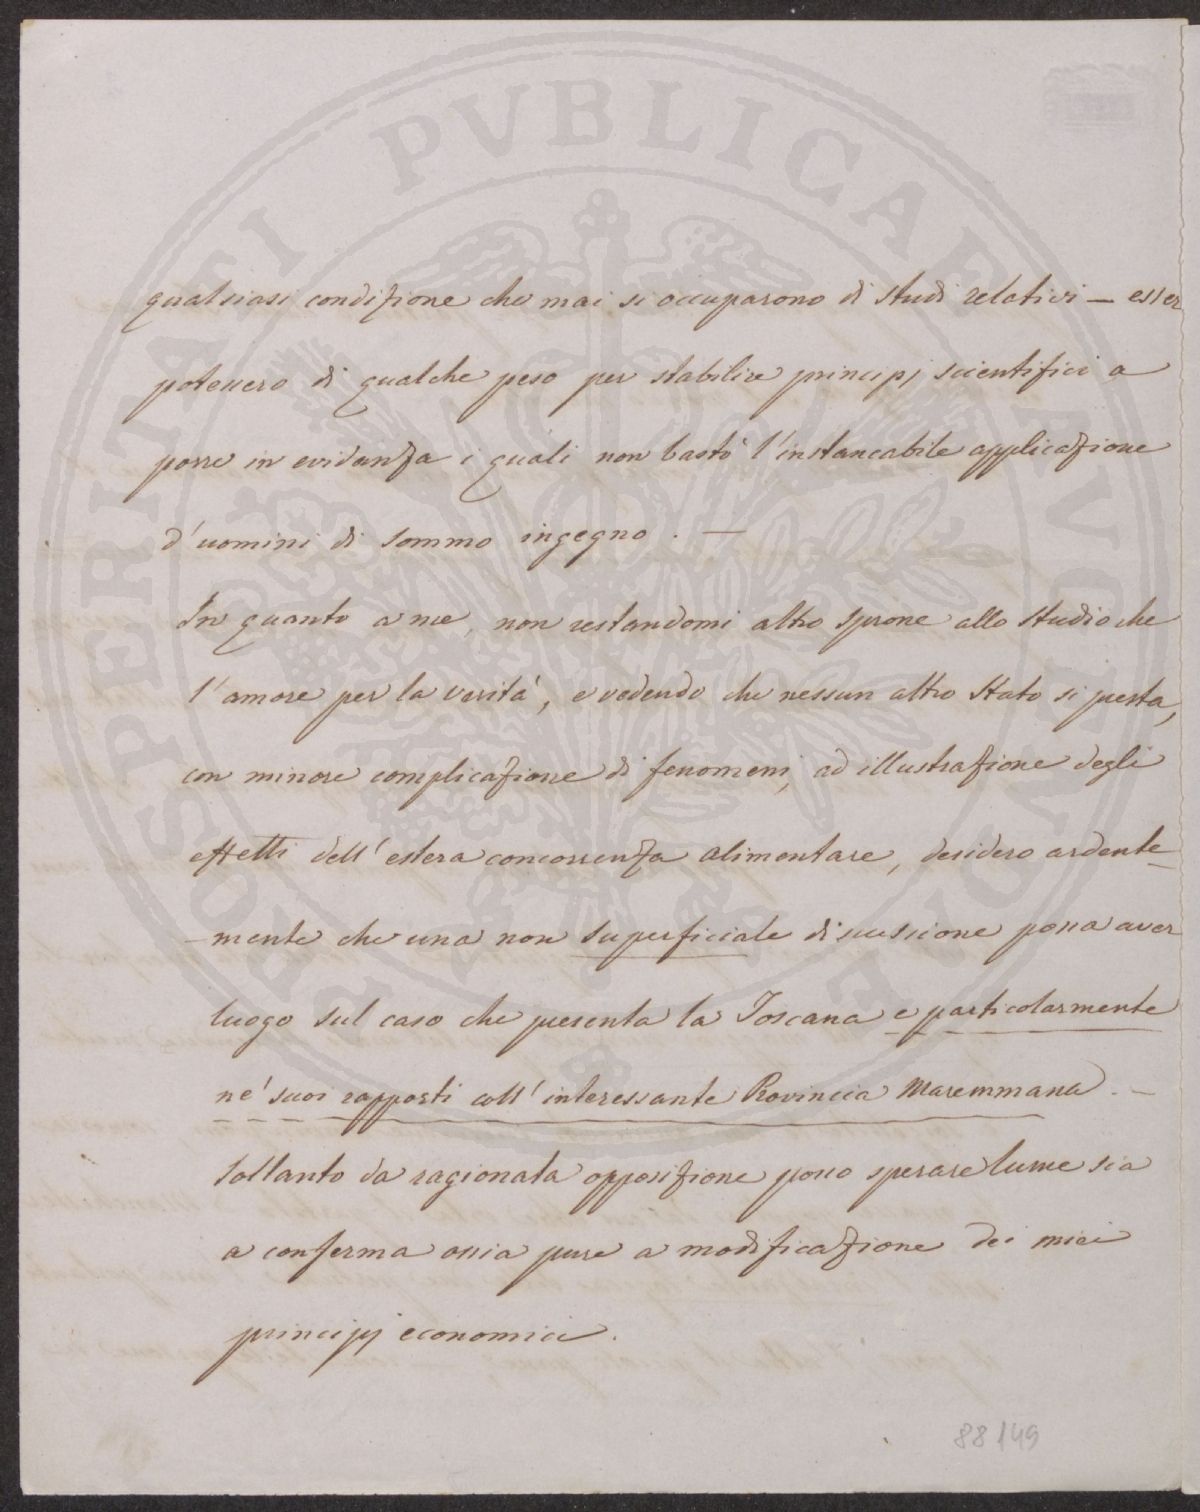 qualsiasi condizione che mai si occuparono di studi relativi — esser
potessero di qualche peso per stabilire principj scientifici a
porre in evidenza i quali non bastò l'instancabile applicazione
d'uomini di sommo ingegno. —
In quanto a me, non restandomi altro sprone allo studio che
l'amore per la verità, e vedendo che nessun altro Stato si presta,
con minore complicazione di fenomeni, ad illustrazione degli
effetti dell'estera concorrenza alimentare, desidero ardente-
-mente che una non superficiale discussione possa aver
luogo sul caso che presenta la Toscana e particolarmente
ne' suoi rapporti coll'interessante Provincia Maremmana. —
Soltanto da ragionata opposizione posso sperare lume sia
a conferma ossia pure a modificazione dei miei
principj economici.
88/149
PROSPERITATI PVBLICAE AVGENDAE